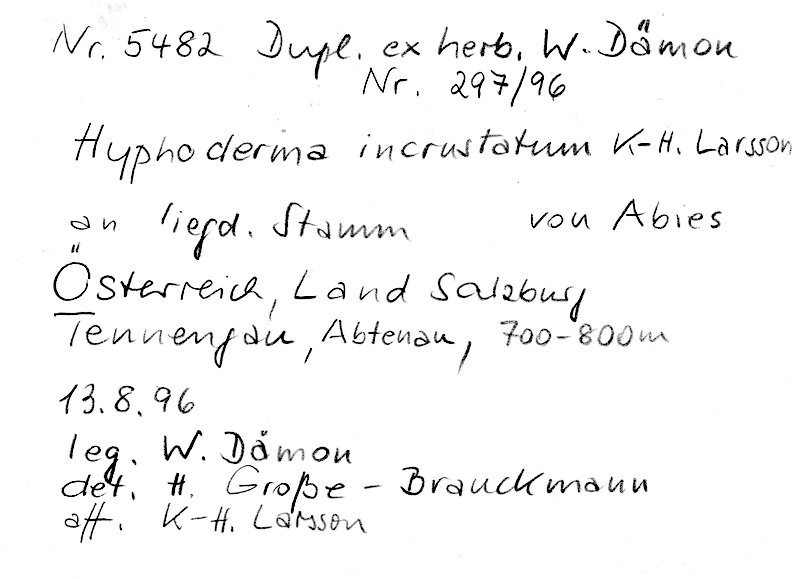 Nr. 5482 Dupl. ex herb. W. Dämon
Nr. 297/96
Hyphoderma incrustatum K-H. Larsson
an liegd. Stamm von Abies
Österreich, Land Salzburg
Tennengau, Abtenau, 700-800m
13.8.96
leg. W. Dämon
det. H. Große - Brauckmann
aff. K-H. Larsson